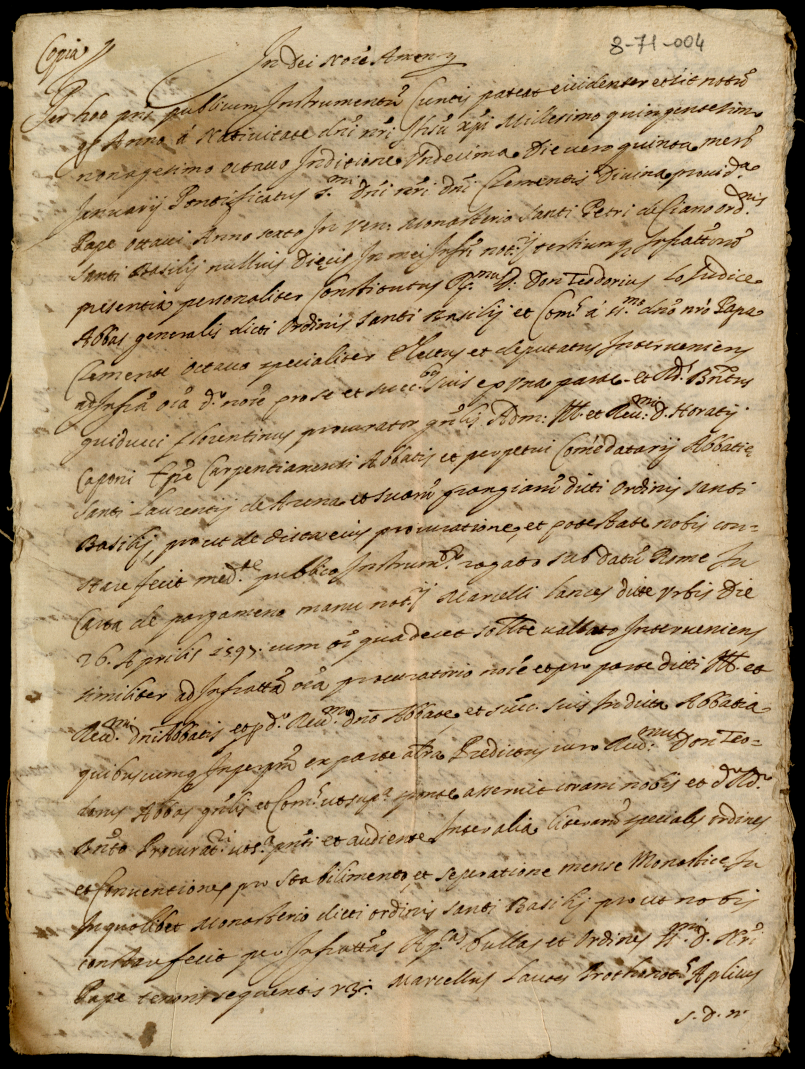 Copia
8-71-004
In Dei Noie Amen
Per hoc pns publicum Instrumentũ Cunctis pateat evidenter et sit notũ
qd Anno à Nativitate dñi nri Jhũ xpi Millesimo quingentesimo
nonagesimo octavo Inditione Undecima Die vero quinta mensis
Januarij Pontificatus S.mi dñi nri dñi Clementis Divina provid.a
Pape ottavi Anno sexto In Ven: Monasterio Santi Petri de Ord.nis
Santi Basilij nullius Diecis In mei Infr not.ij testium q Infrattorũ
presentia personaliter Constitutus R.mus D. Don Teodorius Lo Iudice
Abbas generalis dicti Ordinis Santi Basilij et Com.s à S.mo dño nrõ Papa
Clemente octavo specialiter Electus et deputatus Interveniens
ad Infra oia d.o noie pro se et succ.bus suis ex una parte et Rd. Bnttus
guiducci florentinus procurator gñlis Adm: Ill. et Reu.mi D. Horatij
Caponi Epi Carpentianensi Abbatis et perpetui Comẽdatarij Abbatie
Santi Laurentij de Arena et suarũ grangiarũ dicti Ordinis Santi
Basilij, prout de dicta eius procuratione, et potestate nobis con=
stare fecit med.te publico Instrum.to rogato sub datũ Rome In
Carta de pargameno manu not.ij Marcelli dicte Urbis Die
26. Aprilis 1597. cum oi qua decet sollte vallato Interveniens
similiter ad Infratta oia procuratorio noie et pro parte dicti Ill. et
Reud.mi dñi Abbatis et p d.o Reud.mo dño Abbate, et succ. suis In dicta Abbatia
quibuscumq Insequm ex parte altra Predictus vero Reud.mus Don Teo=
dorus Abbas gñlis et Com.s ut sup.a sponte asseruit coram nobis et d.o Rd.o
Bntto Procurat.i uts.a pnti et audiente Inter alia literarũ speciales ordines
et Conventiones pro stabilimento, et separatione mense Monastice In
In quolibet Monasterio dicti ordinis Santi Basilij prout nobis
constare fecit per Infrattas Ap.cas bullas et Ordines S.mi D. Nri
Pape tenoris sequentis vz: Marcellus Lantes Prothonot.s Aplicus
s. d. n.